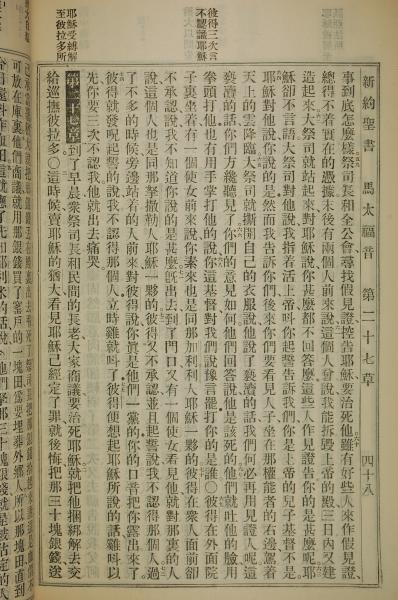 新約聖書 馬太福音 第二十七章 四十八
彼得三次言不認識耶穌
耶穌受縛解至彼拉多所
事到底怎麼樣祭司長和全公會尋找假見證控告耶穌要治死他雖有好些人來作假見證
總得不着實在的憑據末後有兩個人前來說這個人曾說我能拆毀上帝的殿三日內又建
造起來大祭司就站起來對耶穌說你甚麼都不回答麼這些人作見證告你的是甚麼呢耶
穌却不言語大祭司對他說我指着活上帝叫你起誓告訴我們你是上帝的兒子基督不是
耶穌對他說你說的是然而我告訴你們後來你們要看見人子坐在那權能者的右邊駕着
天上的雲降臨大祭司就撕開自己的衣服說他說了褻瀆的話我們何必再用見證人呢這
褻瀆的話你們方纔聽見了你們的意見如何他們回答說他是該死的他們就吐他的臉用
拳頭打他也有用手掌打他的說你這基督對我們說像言罷打你的是誰〇彼得在外面院
子裏坐着有一個使女前來說你素來也是同那加利利人耶穌一夥的彼得在衆人面前却
不承認說我不知道你說的是甚麼旣出去到了門口又有一個使女看見他就對那裏的人
說這個人也是同那拏撒勒人耶穌一夥的彼得又不承認並且起誓說我不認得那個人過
了不多的時候旁邊站着的人前來對彼得說你眞是他們一黨的你的口音把你露出來了
彼得就發呪起誓的說我不認得那個人立時雞就呌了彼得便想起耶穌所說的話雞呌以
先你要三次不認我他就出去痛哭
第二十七章到了早晨衆祭司長和民間的長老大家商議要治死耶穌就把他捆綁解去交
給巡撫彼拉多〇這時候賣耶穌的猶大看見耶穌已經定了罪就後悔把那三十塊銀錢送